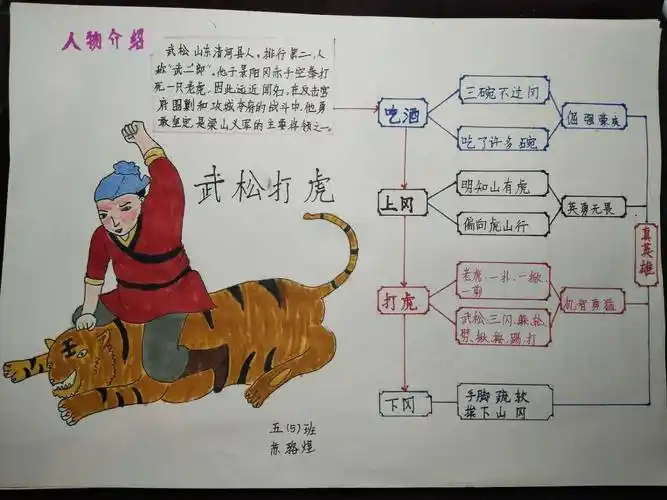 人物介绍
武松 山东清河县人。排行第二，人
称“武二郎”。他于景阳冈赤手空拳打
死一只老虎，因此远近闻名。在反击官
府围剿和攻城夺府的战斗中，他勇
敢坚定，是梁山义军的主要将领之一。
武松打虎
吃酒
三碗不过冈
吃了许多碗
倔强豪爽
上冈
明知山有虎
偏向虎山行
英勇无畏
打虎
老虎：一扑、一掀、
一剪
武松：三闪、躲、抡、
劈、揪、按、踢、打
机智勇猛
下冈
手脚疏软
挨下山冈
真英雄
王
五（5）班